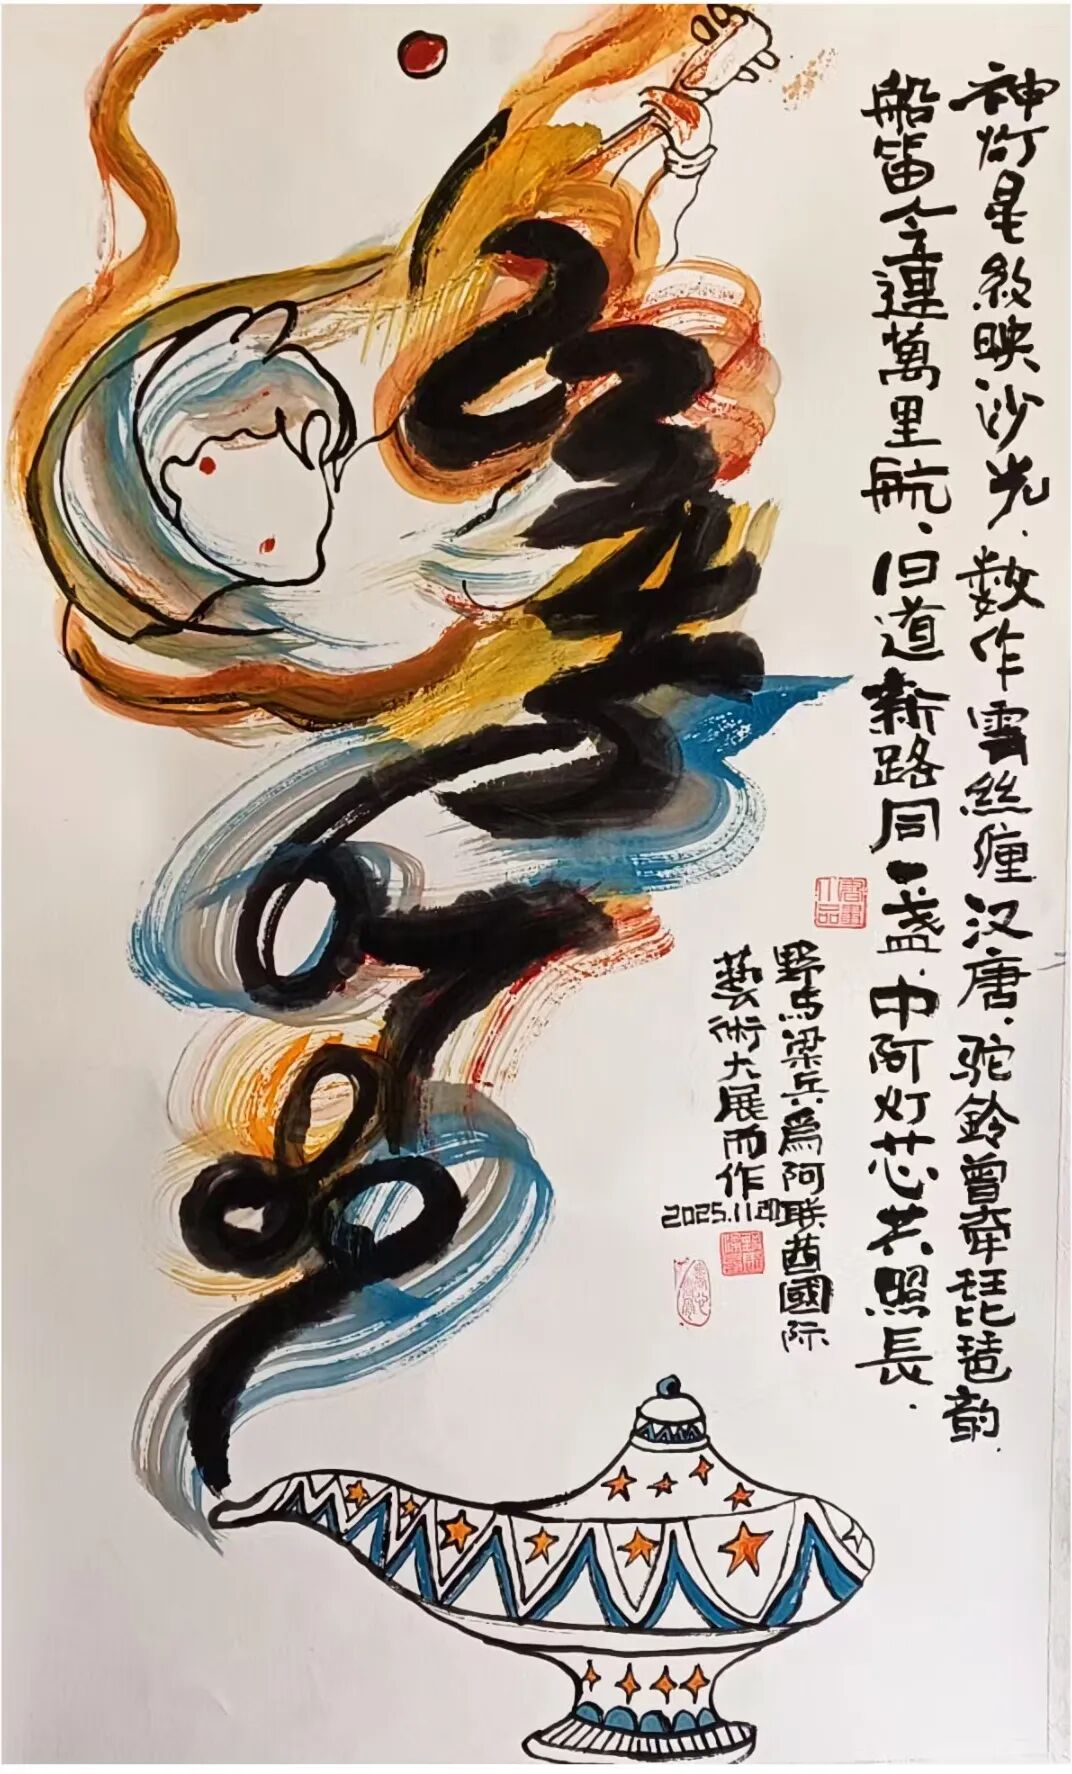 神灯星纹映沙光、散作雲絲缠汉唐、驼鈴曾牵琵琶韵.
船笛今連萬里航、旧道新路同一盏、中阿灯芯共照長.
野马梁兵爲阿联酋國际
藝術大展而作
2025.11.20